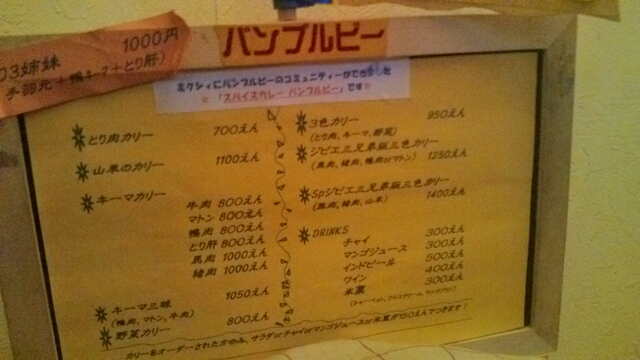 03姉妹 1000円
手羽元+鴨キーマ+とり肝)
バンブルビー
ミクシィにバンブルビーのコミュニティーができました
☆「スパイスカレー バンブルビー」です☆
とり肉カリー 700えん
山羊のカリー 1100えん
キーマカリー
牛肉 800えん
マトン 800えん
鴨肉 800えん
とり肝 800えん
馬肉 1000えん
猪肉 1000えん
キーマ三昧 1050えん
(鴨肉、マトン、牛肉)
野菜カリー 800えん
3色カリー 950えん
(とり肉、キーマ、野菜)
ジビエ三兄弟版三色カリー
(馬肉、猪肉、鴨肉orマトン) 1250えん
Spジビエ三兄弟版三色カリー
(馬肉、猪肉、山羊) 1400えん
DRINKS
チャイ 300えん
マンゴジュース 300えん
インドビール 500えん
ワイン 400えん
氷菓 300えん
カリーをオーダーされた方のみ、サラダorチャイorマンゴジュースor氷菓が150えんでつきます!